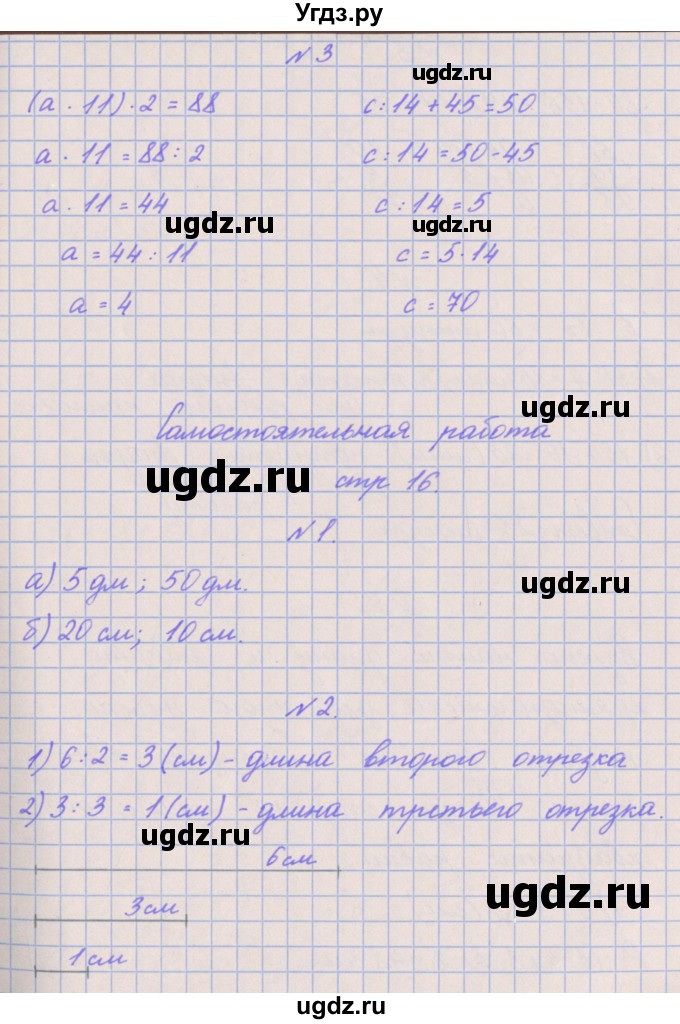 Угдз.ру
N 3
ugdz.ru
(а · 11) · 2 = 88
с : 14 + 45 = 50
а · 11 = 88 : 2
с : 14 = 50 - 45
а · 11 = 44
с : 14 = 5
ugdz.ru
ugdz.ru
а = 44 : 11
с = 5 · 14
а = 4
с = 70
ugdz.ru
Самостоятельная работа
ugdz.ru
стр 16.
N 1.
а) 5 дм ; 50 дм.
ugdz.ru
б) 20 см; 10 см.
N 2.
1) 6 : 2 = 3 (см) - длина второго отрезка
2) 3 : 3 = 1 (см) - длина третьего отрезка.
ugdz.ru
6 см
ugdz.ru
3 см
1 см
ugdz.ru